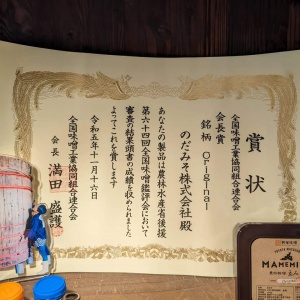 賞状
全国味噌工業協同組合連合会
会長賞
銘柄 Original
のだみそ株式会社殿
あなたの製品は農林水産省後援
第六十四回全国味噌鑑評会において
審査の結果頭書の成績を収められました
よってこれを賞します
令和五年十一月十六日
全国味噌工業協同組合連合会
会長 満田盛護
MAMEMI